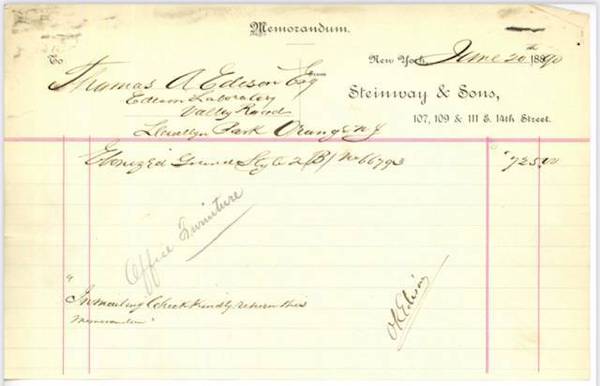 Memorandum.
To
New York, June 20th 1890
Thomas A Edison Esq
From
Edison Laboratory
Steinway & Sons,
Valley Road
107, 109 & 111 E. 14th Street.
Llewellyn Park Orange N J
Ebonized Grand Style 2 (B) No 66793
$725.00
Office Furniture
"In mailing Check Kindly return this
Memorandum"
OK Edison